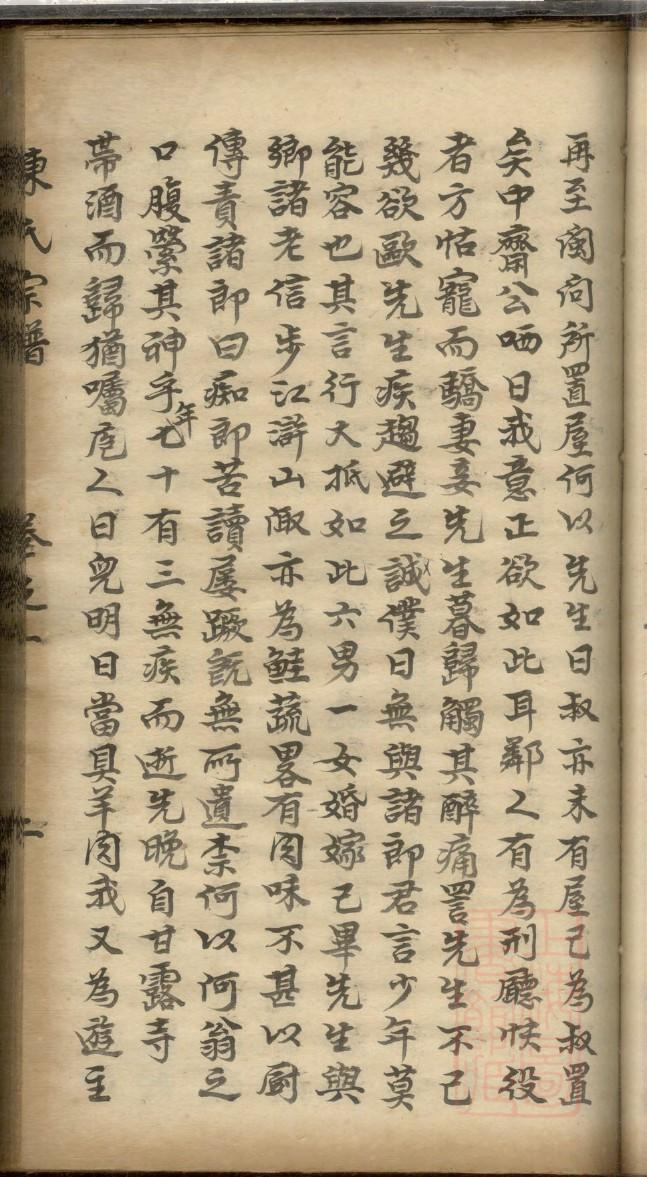 再至闽问所置屋何以先生曰叔亦未有屋已為叔置
矣中齋公哂曰我意正欲如此耳鄰人有為刑廳快役
者方怙寵而驕妻妾先生暮歸觸其醉痛詈先生不已
幾欲毆先生疾趨避之誡僕曰無與諸郎君言少年莫
能容也其言行大抵如此六男一女婚嫁已畢先生與
鄉諸老信步江滸山陬亦為鮭蔬畧有肉味不甚以厨
傳責諸郎曰痴郎苦讀屡蹶既無所遺柰何以何翁之
口腹縈其神乎年七十有三無疾而逝先晚自甘露寺
帶酒而歸猶囑庖人曰兒明日當具羊肉我又為遊主
陳氏宗譜 卷之一